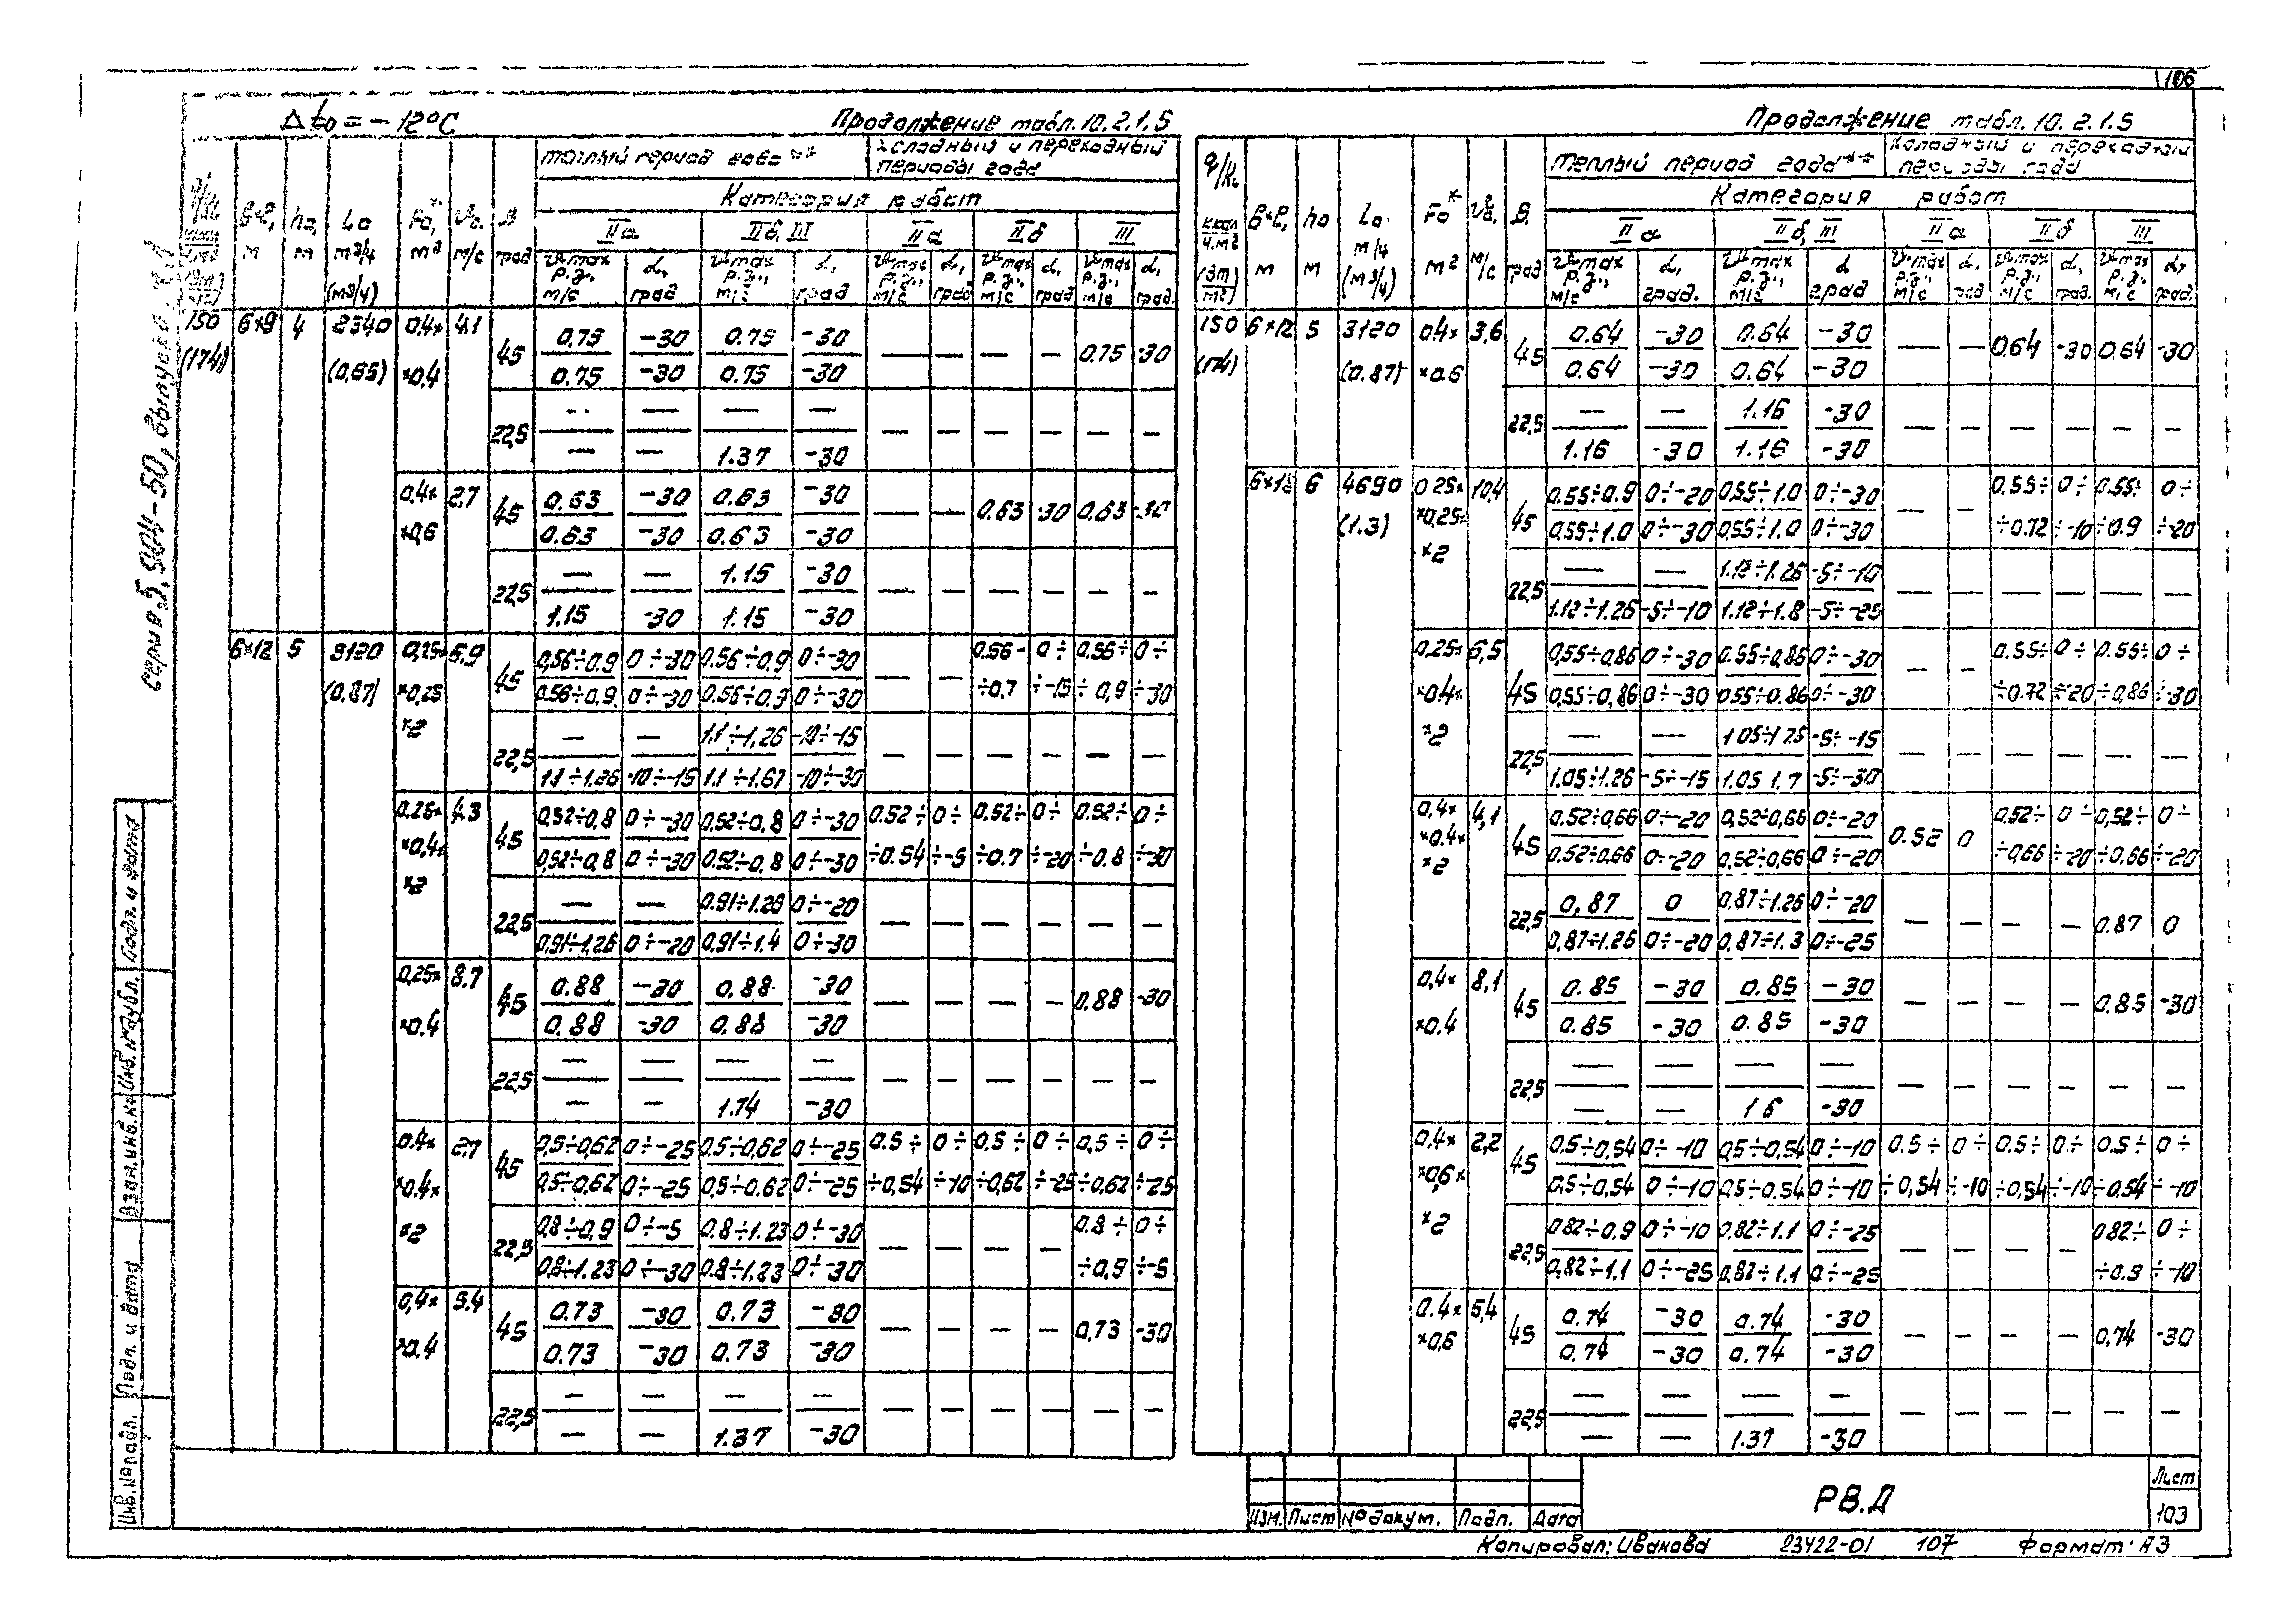 106
Δto = -12°C
Продолжение табл. 10.2.1.5
теплый период года**
холодный и переходный периоды года
Категория работ
IIа IIб, III IIа IIб III
b×l, м
ho, м
Lo м³/ч (м³/ч)
Fo*, м²
vo, м/с
β град
vmax р.з., м/с
α, град
150 (174) 6×9 4 2340 (0,65) 0.4××0,4 4.1
45 0.75 -30 0.75 -30 — — — — 0.75 -30
0.75 -30 0.75 -30
22,5 — — — — — — — — — —
— — 1.37 -30
0.4××0,6 2,7
45 0.63 -30 0.63 -30 — — 0.63 -30 0.63 -30
0.63 -30 0.63 -30
22,5 — — 1.15 -30 — — — — — —
1.15 -30 1.15 -30
6×12 5 3120 (0.87) 0,25××0,25×2 6,9
45 0,56÷0.9 0÷-30 0.56÷0,9 0÷-30 — — 0.56÷0,7 0÷-15 0.56÷0,9 0÷-30
0.56÷0,9 0÷-30 0.56÷0,9 0÷-30
22,5 — — 1.1÷1,26 -10÷-15 — — — — — —
1.1÷1.26 -10÷-15 1.1÷1.67 -10÷-30
0.25××0,4××2 4.3
45 0,52÷0,8 0÷-30 0.52÷0,8 0÷-30 0.52÷0.54 0÷-5 0.52÷0.7 0÷-20 0.52÷0.8 0÷-30
0,52÷0,8 0÷-30 0.52÷0,8 0÷-30
22,5 — — 0.91÷1.26 0÷-20 — — — — — —
0,91÷1,26 0÷-20 0.91÷1.4 0÷-30
0,25××0.4 8.7
45 0.88 -30 0.88 -30 — — — — 0.88 -30
0.88 -30 0.88 -30
22,5 — — — — — — — — — —
— — 1.74 -30
0.4××0.4××2 2,7
45 0,5÷0,62 0÷-25 0.5÷0,62 0÷-25 0.5÷0,54 0÷-10 0.5÷0,62 0÷-25 0,5÷0,62 0÷-25
0,5÷0,62 0÷-25 0,5÷0.62 0÷-25
22,5 0,8÷0,9 0÷-5 0.8÷1.23 0÷-30 — — — — 0.8÷0,9 0÷-5
0,8÷1.23 0÷-30 0.8÷1,23 0÷-30
0,4××0.4 5.4
45 0.73 -30 0.73 -30 — — — — 0,73 -30
0.73 -30 0.73 -30
22,5 — — — — — — — — — —
— — 1.37 -30
Продолжение табл. 10.2.1.5
q/к, ккал/ч.м² (Вт/м²)
b×l, м
ho м
Lo м/ч (м³/ч)
Fo* м²
vo, м/с
β, град
теплый период года**
холодный и переходный периоды года
Категория работ
IIа IIб, III IIа IIб III
vmax р.з., м/с
α, град.
150 (174) 6×12 5 3120 (0.87) 0.4××0.6 3,6
45 0.64 -30 0.64 -30 — — 0.64 -30 0,64 -30
0.64 -30 0.64 -30
22,5 — — 1.16 -30 — — — — — —
1.16 -30 1.16 -30
6×18 6 4690 (1.3) 0.25××0,25××2 10,4
45 0.55÷0.9 0÷-20 0.55÷1.0 0÷-30 — — 0.55÷0.72 0÷-10 0.55÷0.9 0÷-20
0.55÷1.0 0÷-30 0.55÷1.0 0÷-30
22,5 — — 1.12÷1.26 -5÷-10 — — — — — —
1.12÷1.26 -5÷-10 1.12÷1.8 -5÷-25
0,25××0.4××2 6,5
45 0,55÷0,86 0÷-30 0.55÷0,86 0÷-30 — — 0.55÷0.72 0÷-20 0.55÷0,86 0÷-30
0,55÷0,86 0÷-30 0.55÷0.86 0÷-30
22,5 — — 1.05÷1.25 -5÷-15 — — — — — —
1.05÷1.26 -5÷-15 1.05 1.7 -5÷-30
0.4××0.4××2 4,1
45 0.52÷0,66 0÷-20 0,52÷0,66 0÷-20 0.52 0 0,52÷0,66 0÷-20 0,52÷0,66 0÷-20
0.52÷0.66 0÷-20 0,52÷0,66 0÷-20
22,5 0,87 0 0,87÷1.26 0÷-20 — — — — 0.87 0
0,87÷1.26 0÷-20 0,87÷1.3 0÷-25
0,4××0.4 8,1
45 0.85 -30 0.85 -30 — — — — 0.85 -30
0.85 -30 0.85 -30
22,5 — — — — — — — — — —
— — 1 6 -30
0,4××0,6××2 2,2
45 0,5÷0,54 0÷-10 0,5÷0,54 0÷-10 0.5÷0,54 0÷-10 0.5÷0,54 0÷-10 0.5÷0.54 0÷-10
0,5÷0,54 0÷-10 0,5÷0.54 0÷-10
22,5 0.82÷0.9 0÷-10 0,82÷1.1 0÷-25 — — — — 0.82÷0.9 0÷-10
0,82÷1.1 0÷-25 0,82÷1.1 0÷-25
0.4××0,6 5,4
45 0.74 -30 0.74 -30 — — — — 0,74 -30
0.74 -30 0.74 -30
22,5 — — — — — — — — — —
— — 1.37 -30
серия 5.904-50, выпуск
Подп. и дата
Инв. № дубл.
Взам. инв. №
Подп. и дата
Инв. № подл.
Изм. Лист № докум. Подп. Дата
РВ.Д
Лист
103
Копировал: Иванова 23422-01 107 Формат: А3